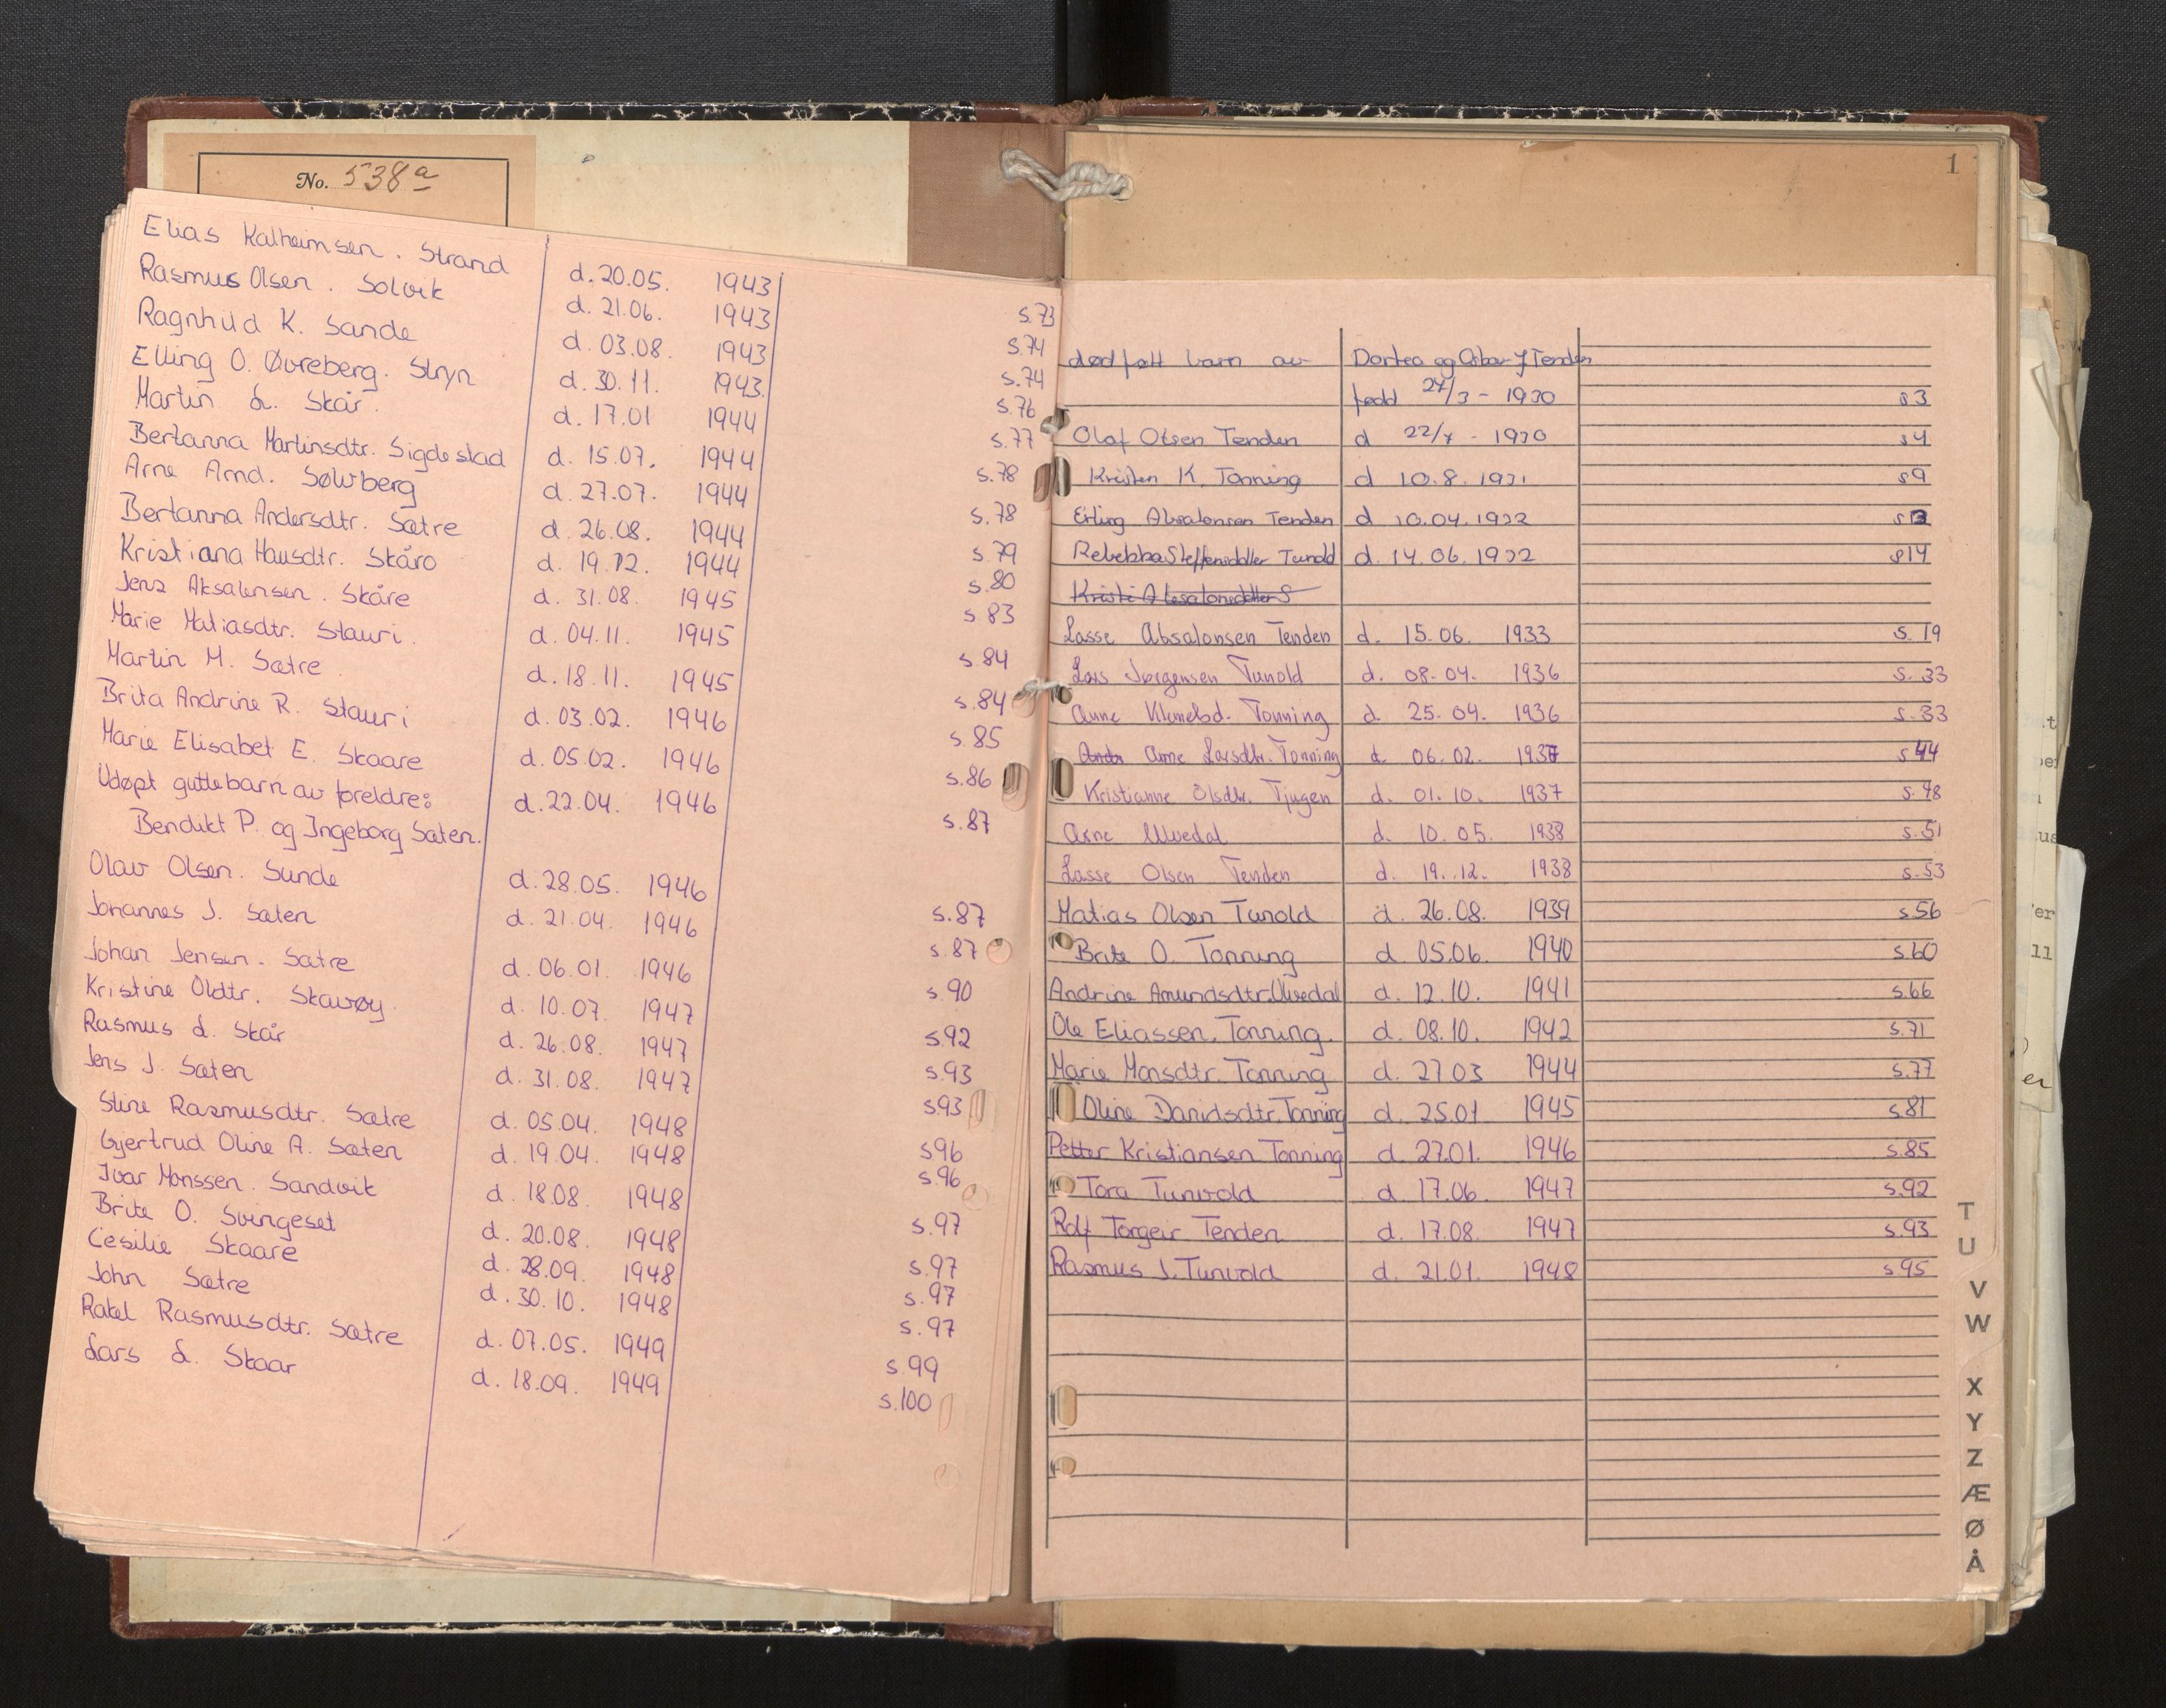 No. 538a
Elias Kalheimsen. Strand d. 20.05. 1943 s.73
Rasmus Olsen. Solvik d. 21.06. 1943 s.74
Ragnhild K. Sande d. 03.08. 1943 s.74
Elling O. Øvreberg. Stryn d. 30.11. 1943. s.76
Martin L. Skår. d. 17.01 1944 s.77
Bertanna Martinsdtr. Sigdestad d. 15.07. 1944 s.78
Arne Arnd. Sølvberg d. 27.07. 1944 s.78
Bertanna Andersdtr. Sætre d. 26.08. 1944 s.79
Kristiana Hansdtr. Skåro d. 19.12. 1944 s.80
Jens Aksalensen. Skåre d. 31.08. 1945 s.83
Marie Matiasdtr. Stauri. d. 04.11. 1945 s.84
Martin M. Sætre. d. 18.11. 1945 s.84
Brita Andrine R. Stauri d. 03.02. 1946 s.85
Marie Elisabet E. Skaare d. 05.02. 1946 s.86
Udøpt guttebarn av foreldre: d. 22.04. 1946 s.87
Bendikt P. og Ingeborg Sæten.
Olav Olsen. Sunde d. 28.05. 1946 s.87
Johannes J. Sæten d. 21.04. 1946 s.87
Johan Jensen. Sætre d. 06.01. 1946 s.90
Kristine Oldtr. Skavøy. d. 10.07. 1947 s.92
Rasmus L. Skår d. 26.08. 1947 s.93
Jens J. Sæten d. 31.08. 1947 s.93
Stine Rasmusdtr. Sætre d. 05.04. 1948 s96
Gjertrud Oline A. Sæten d. 19.04. 1948 s.96
Ivar Monssen. Sandvik d. 18.08. 1948 s.97
Brite O. Svingeset d. 20.08. 1948 s.97
Cesilie Skaare d. 28.09. 1948 s.97
John Sætre d. 30.10. 1948 s.97
Rakel Rasmusdtr. Sætre d. 07.05. 1949 s.99
Lars L. Skaar d. 18.09. 1949 s.100
1
dødfødt barn av Dortea og Oskar J Tenden
fødd 27/3 - 1930 s3
Olaf Olsen Tenden d 22/7 - 1930 s4
Kristen K. Tonning d 10.8.1931 s9
Erling Absalonsen Tenden d 10.04.1932 s13
Rebekka Steffensdtter Tunold d. 14.06.1932 s14
Kristi Absalonsdtter S
Lasse Absalonsen Tenden d. 15.06. 1933 s. 19
Lars Jørgensen Tunold d. 08.04. 1936 s. 33
Anne Klumetsd. Tonning d. 25.04. 1936 s. 33
Andr Anne Larsdtr. Tonning d. 06.02. 1937 s 44
Kristianne Olsdtr. Tjugen d. 01.10. 1937 s. 48
Arne Ulvedal d. 10.05. 1938 s. 51
Lasse Olsen Tenden d. 19.12. 1938 s. 53
Matias Olsen Tunold d. 26.08. 1939 s56
Brite O. Tonning d. 05.06. 1940 s.60
Andrine Amundsdtr. Ulvedal d. 12.10. 1941 s.66
Ole Eliassen. Tonning. d. 08.10. 1942 s.71
Marie Monsdtr. Tonning d. 27.03 1944 s.77
Oline Danidsdtr. Tonning d. 25.01 1945 s81
Petter Kristiansen Tonning d. 27.01. 1946 s.85
Tora Tunvold d. 17.06. 1947 s.92
Rolf Torgeir Tenden d. 17.08. 1947 s.93
Rasmus J. Tunvold d. 21.01. 1948 s95
T
U
V
W
X
Y
Z
Æ
Ø
Å